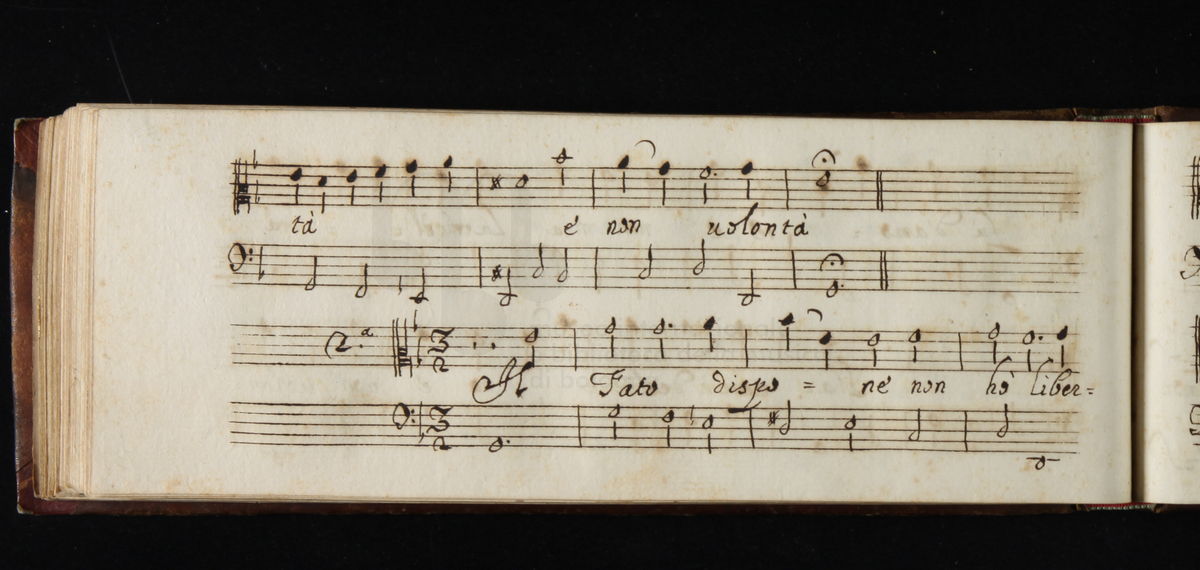 tà é non uolontà
2.ª 3 2
Il Fato dispo = né non hò liber=
3 2